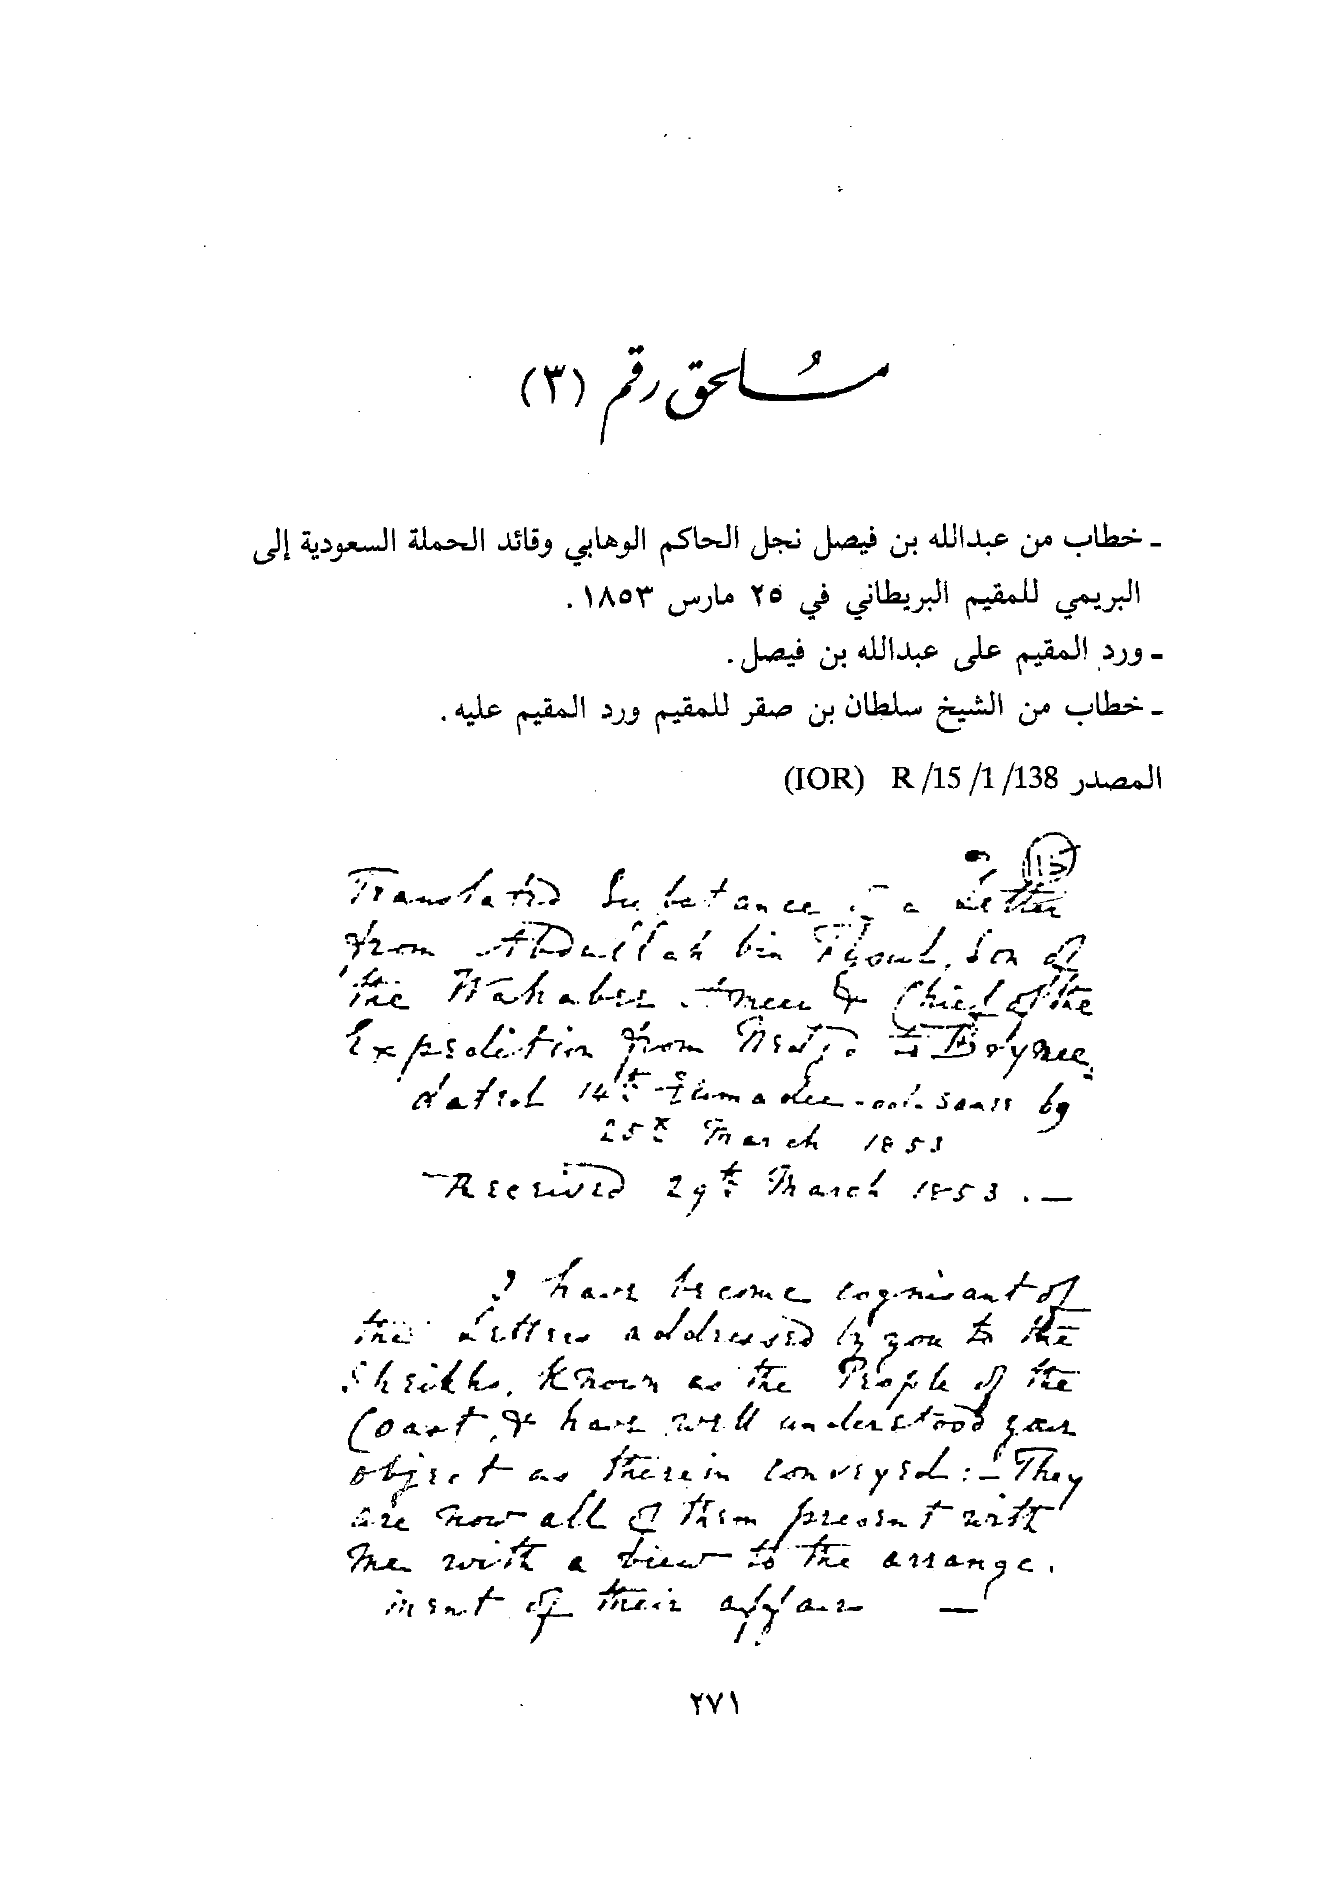 مُلحق رقم (٣)
ـ خطاب من عبدالله بن فيصل نجل الحاكم الوهابي وقائد الحملة السعودية إلى
البريمي للمقيم البريطاني في ٢٥ مارس ١٨٥٣.
ـ ورد المقيم على عبدالله بن فيصل.
ـ خطاب من الشيخ سلطان بن صقر للمقيم ورد المقيم عليه.
المصدر R/15/1/138 (IOR)
Translated Substance of a Letter
from Abdullah bin Fysul, Son of
the Wahabee Ameer & Chief of the
Expedition from Nedjd to Brymee,
dated 14th Jumadee-ool-
25th March 1853
Received 29th March 1853. —
I have become cognisant of
the Letters addressed by you to the
Sheikhs, known as the People of the
Coast, & have well understood your
object as therein conveyed: – They
are now all of them present with
me with a view to the arrange.
ment of their affairs —
٢٧١